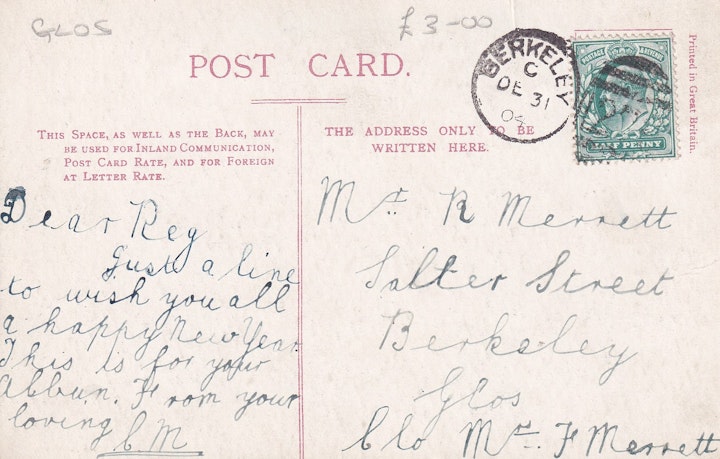 GLOS
£3-00
POST CARD.
BERKELEY
C
DE 31
POSTAGE & REVENUE
HALF PENNY
Printed in Great Britain.
THIS SPACE, AS WELL AS THE BACK, MAY
BE USED FOR INLAND COMMUNICATION,
POST CARD RATE, AND FOR FOREIGN
AT LETTER RATE.
THE ADDRESS ONLY TO BE
WRITTEN HERE.
Dear Reg
Just a line
to wish you all
a happy New Year.
This is for your
Albun. From your
loving C M
Mr R Merrett
Salter Street
Berkeley
Glos
C/o Mr. F Merrett